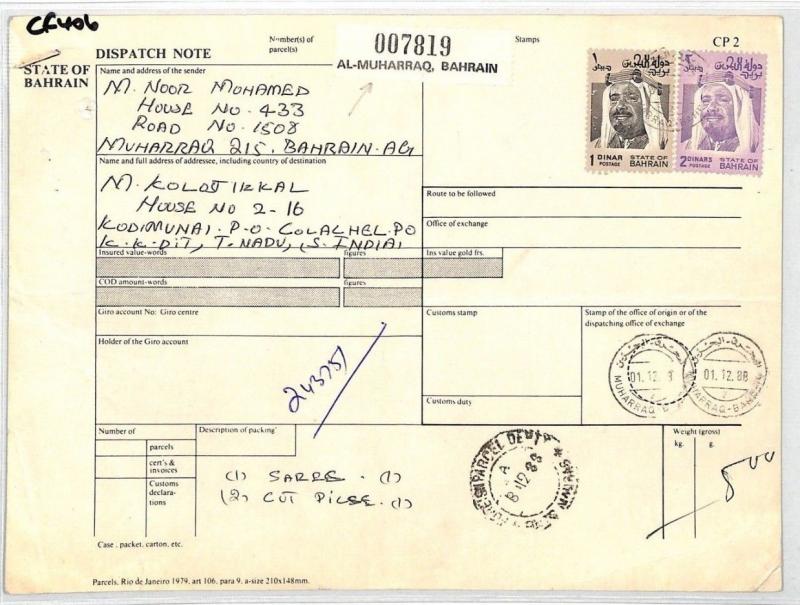 CF406
DISPATCH NOTE
STATE OF
BAHRAIN
Number(s) of
parcel(s)
007819
AL-MUHARRAQ, BAHRAIN
Stamps
CP 2
دولة البحرين
1 DINAR STATE OF
POSTAGE BAHRAIN
دولة البحرين
2 DINARS STATE OF
POSTAGE BAHRAIN
Name and address of the sender
M. NOOR MOHAMED
HOUSE NO. 433
ROAD NO. 1508
MUHARRAQ 215. BAHRAIN. AG
Name and full address of addressee, including country of destination
M. KOLOTIRKAL
HOUSE NO 2-16
KODIMUNAI. P.O. COLACHEL. PO
K.K. DIT, T. NADU, (S. INDIA)
Route to be followed
Office of exchange
Insured value-words
figures
Ins value gold frs.
COD amount-words
figures
Giro account No: Giro centre
Holder of the Giro account
243751
Customs stamp
Customs duty
Stamp of the office of origin or of the
dispatching office of exchange
المحرق - البحرين
01.12.8
MUHARRAQ-B
المحرق - البحرين
01.12.88
MUHARRAQ-BAHRAIN
Number of
Description of packing
parcels
cert's &
invoices
Customs
declara-
tions
(1) SAREE. (1)
(2) CUT PIESE. (1)
FOREIGN PARCEL DEPT
A
8 12 88
Weight (gross)
kg.
g.
5 00
Case, packet, carton, etc.
Parcels, Rio de Janeiro 1979, art 106, para 9, a-size 210x148mm.